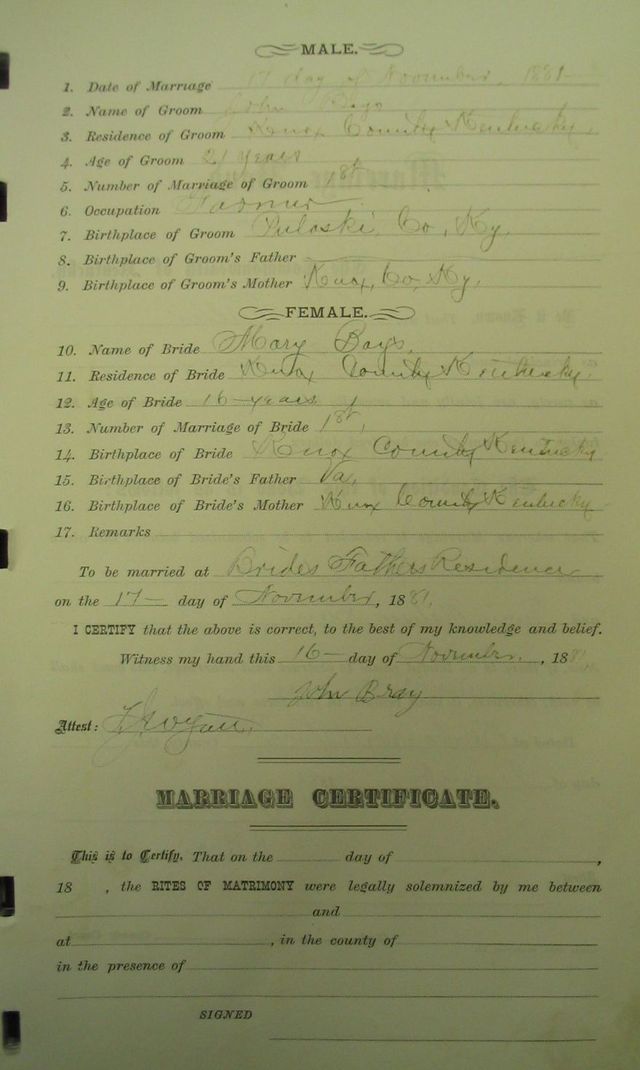 MALE.
1. Date of Marriage 17 day of November, 1881
2. Name of Groom John Bays
3. Residence of Groom Knox County Kentucky.
4. Age of Groom 21 years
5. Number of Marriage of Groom 1st
6. Occupation Farmer
7. Birthplace of Groom Pulaski Co, Ky.
8. Birthplace of Groom's Father
9. Birthplace of Groom's Mother Knox, Co, Ky.
FEMALE.
10. Name of Bride Mary Bays.
11. Residence of Bride Knox County Kentucky.
12. Age of Bride 16 years
13. Number of Marriage of Bride 1st.
14. Birthplace of Bride Knox County Kentucky
15. Birthplace of Bride's Father Va,
16. Birthplace of Bride's Mother Knox County Kentucky
17. Remarks
To be married at Brides Fathers Residence
on the 17 day of November, 1881.
I CERTIFY that the above is correct, to the best of my knowledge and belief.
Witness my hand this 16 day of November, 1881,
John Bray
Attest:
MARRIAGE CERTIFICATE.
This is to Certify, That on the day of ,
18 , the RITES OF MATRIMONY were legally solemnized by me between
and
at , in the county of
in the presence of
SIGNED